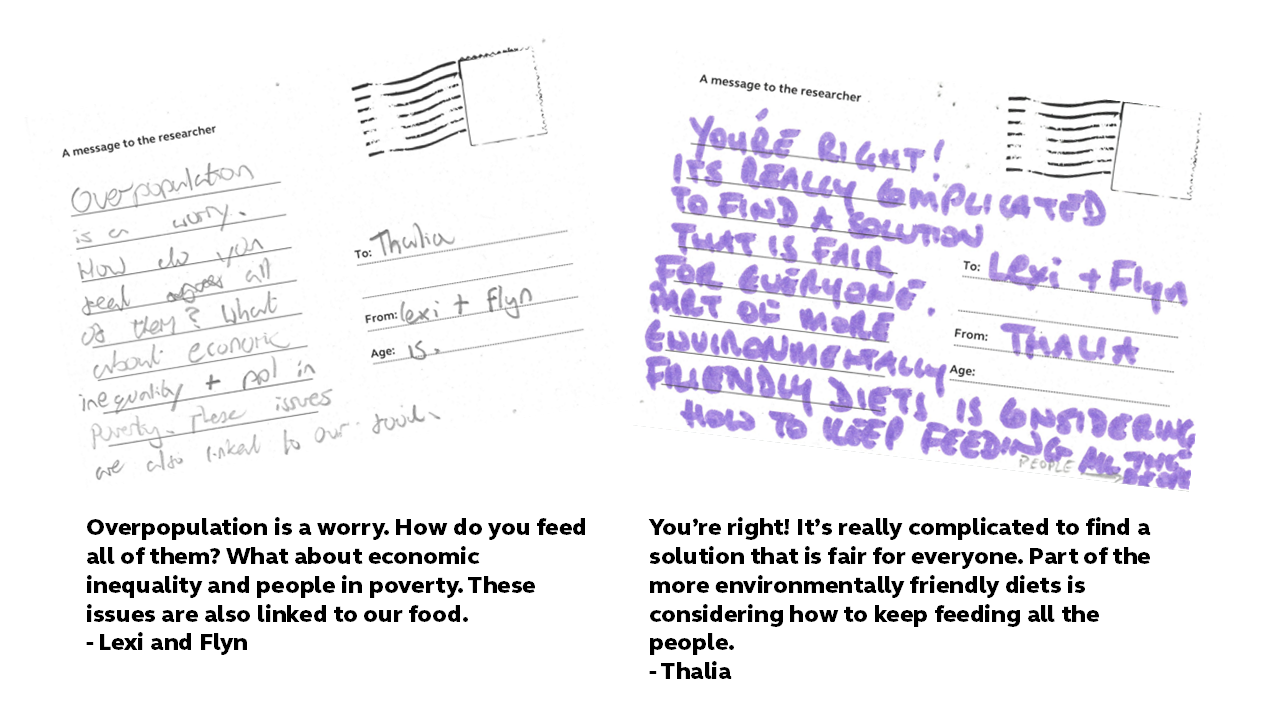 A message to the researcher
Overpopulation
is a worry.
How do you
feed all
of them? What
about economic
inequality + ppl in
Poverty. These issues
are also linked to our food.
To: Thalia
From: lexi + flyn
Age: 15.
A message to the researcher
YOU'RE RIGHT!
IT'S REALLY COMPLICATED
TO FIND A SOLUTION
THAT IS FAIR
FOR EVERYONE.
PART OF MORE
ENVIRONMENTALLY
FRIENDLY DIETS IS CONSIDERING
HOW TO KEEP FEEDING ALL THE
PEOPLE
To: Lexi + Flyn
From: THALIA
Age:
Overpopulation is a worry. How do you feed
all of them? What about economic
inequality and people in poverty. These
issues are also linked to our food.
- Lexi and Flyn
You’re right! It’s really complicated to find a
solution that is fair for everyone. Part of the
more environmentally friendly diets is
considering how to keep feeding all the
people.
- Thalia